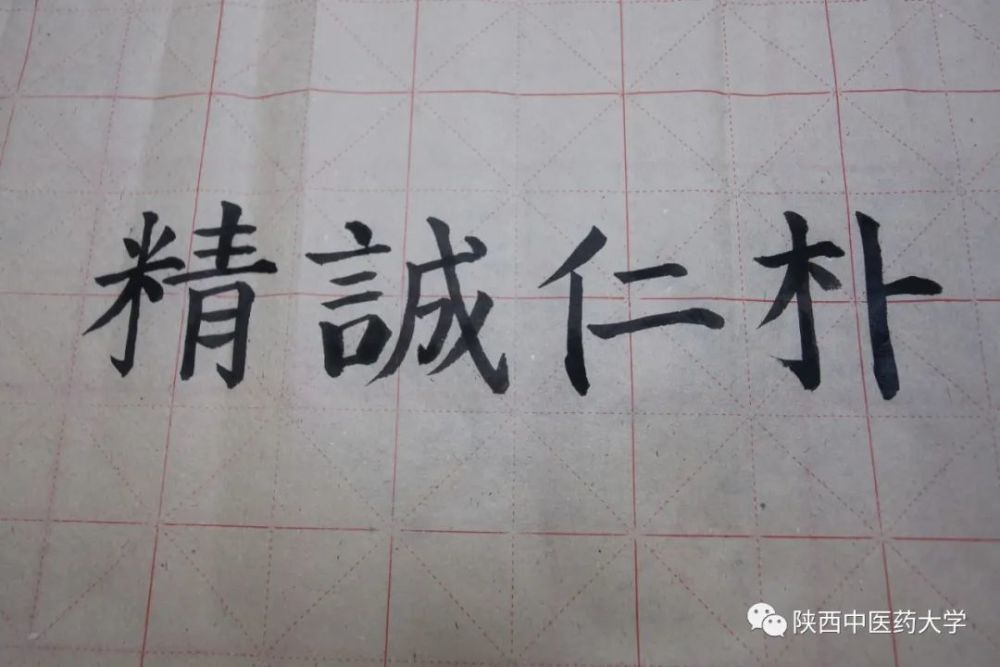 精誠仁朴
陕西中医药大学